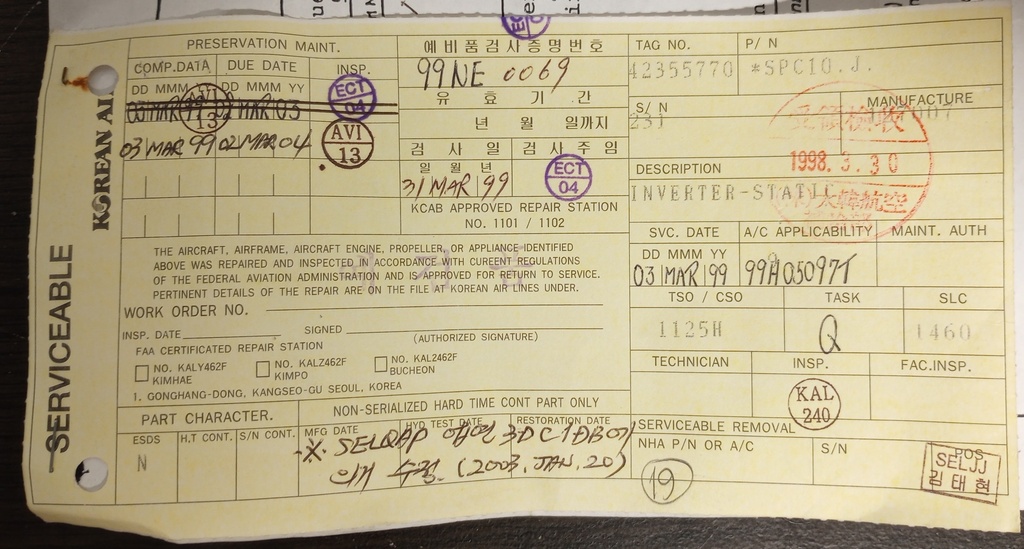 SERVICEABLE
KOREAN AI
PRESERVATION MAINT.
COMP.DATA DUE DATE INSP.
DD MMM DD MMM YY
03 MAR 99 02 MAR 03
ECT 04
03 MAR 99 02 MAR 04
AVI 13
예비품검사증명번호
99NE 0069
유효기간
년 월 일까지
검사일 검사주임
일 월 년
31 MAR 99
ECT 04
KCAB APPROVED REPAIR STATION
NO. 1101 / 1102
TAG NO. P/N
42355770 *SPC10.J.
S/N MANUFACTURE
231
1998. 3. 30
DESCRIPTION
INVERTER-STATIC
SVC. DATE A/C APPLICABILITY MAINT. AUTH
DD MMM YY
03 MAR 99 99H05097T
TSO / CSO TASK SLC
1125H Q 1460
TECHNICIAN INSP. FAC.INSP.
KAL 240
THE AIRCRAFT, AIRFRAME, AIRCRAFT ENGINE, PROPELLER, OR APPLIANCE IDENTIFIED
ABOVE WAS REPAIRED AND INSPECTED IN ACCORDANCE WITH CURRENT REGULATIONS
OF THE FEDERAL AVIATION ADMINISTRATION AND IS APPROVED FOR RETURN TO SERVICE.
PERTINENT DETAILS OF THE REPAIR ARE ON THE FILE AT KOREAN AIR LINES UNDER.
WORK ORDER NO.
INSP. DATE SIGNED
(AUTHORIZED SIGNATURE)
FAA CERTIFICATED REPAIR STATION
NO. KALY462F KIMHAE
NO. KALZ462F KIMPO
NO. KAL2462F BUCHEON
1. GONGHANG-DONG, KANGSEO-GU SEOUL, KOREA
PART CHARACTER. NON-SERIALIZED HARD TIME CONT PART ONLY
ESDS H.T CONT. S/N CONT. MFG DATE HYD TEST DATE RESTORATION DATE
N
※ SELQAP
의거 수정. (2003. JAN. 20)
SERVICEABLE REMOVAL
NHA P/N OR A/C S/N
19
POS
SELJJ
김태현